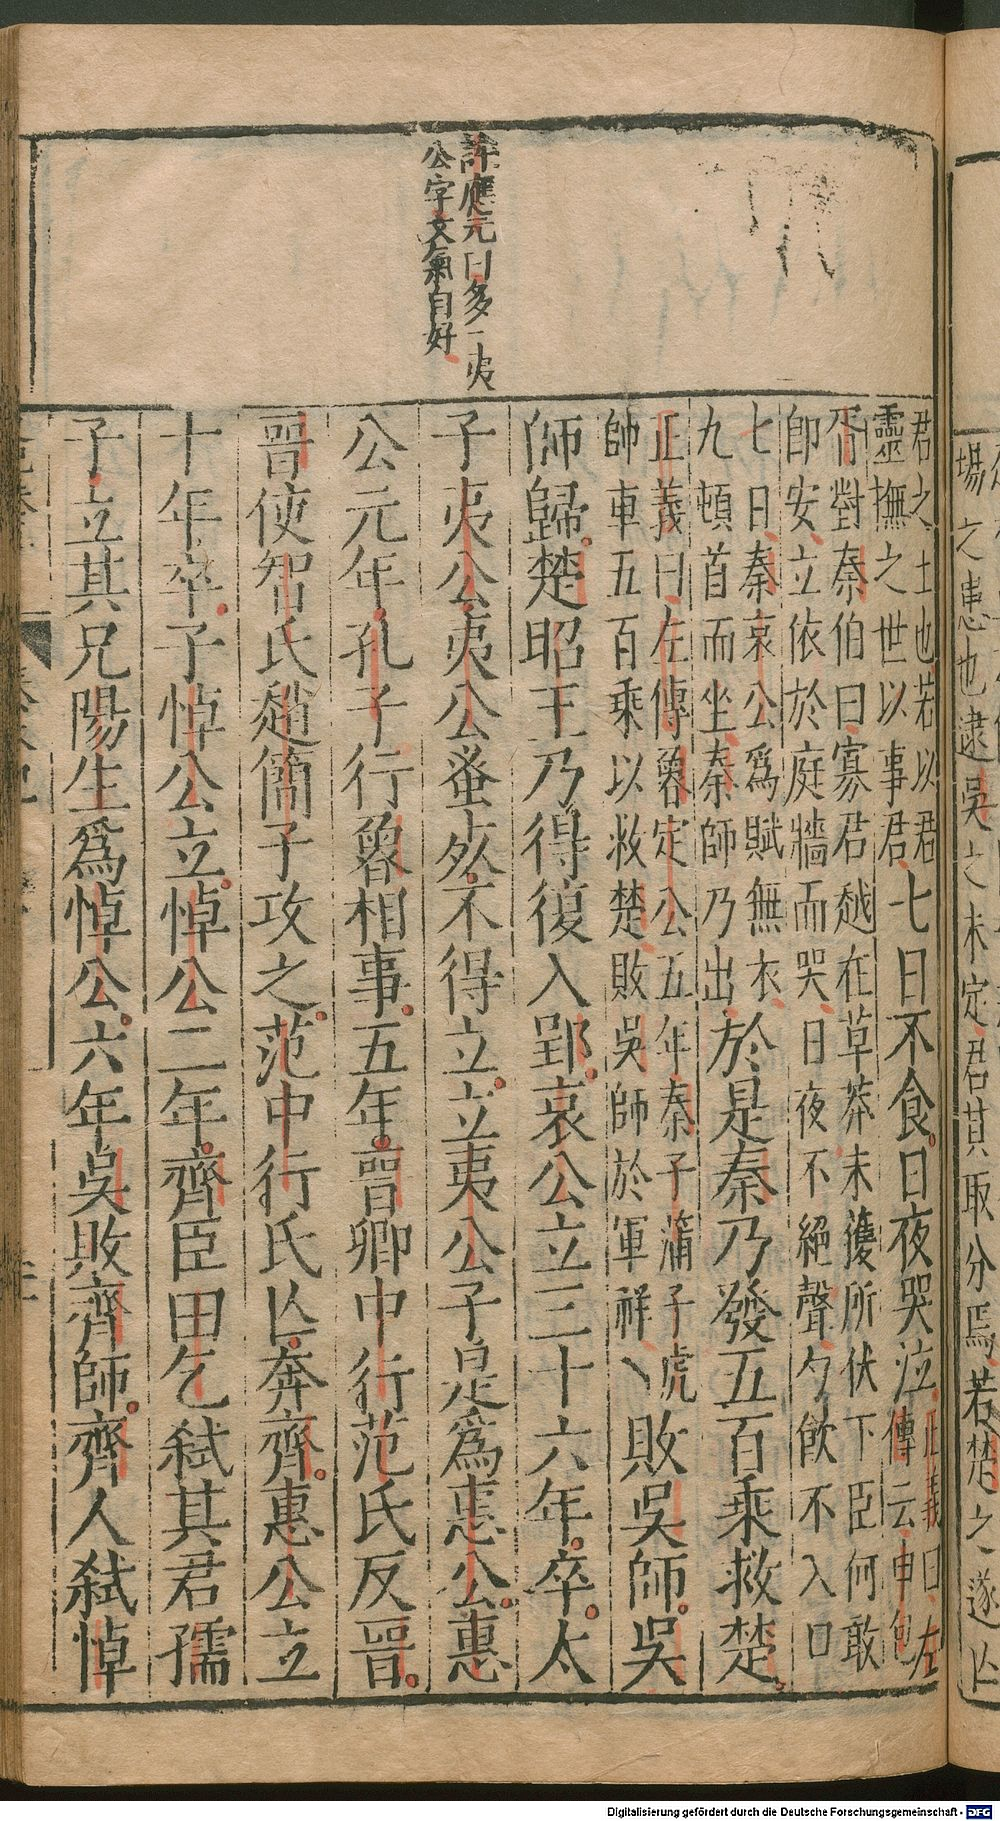 場之患也逮吳之未定君其取分焉若楚之遂亡
許應元曰多一夷
公字文氣自好
君之土也若以君
靈撫之世以事君
七日不食日夜哭泣
正義曰左
傳云申包
胥對秦伯曰寡君越在草莽未獲所伏下臣何敢
即安立依於庭牆而哭日夜不絕聲勺飲不入口
七日秦哀公爲賦無衣
九頓首而坐秦師乃出
於是秦乃發五百乘救楚
正義曰左傳魯定公五年秦子蒲子虎
帥車五百乘以救楚敗吳師於軍祥
敗吳師吳
師歸楚昭王乃得復入郢哀公立三十六年卒太
子夷公夷公蚤死不得立立夷公子是爲惠公惠
公元年孔子行魯相事五年晉卿中行范氏反晉
晉使智氏趙簡子攻之范中行氏亾奔齊惠公立
十年卒子悼公立悼公二年齊臣田乞弒其君孺
子立其兄陽生爲悼公六年吳敗齊師齊人弒悼
Digitalisierung gefördert durch die Deutsche Forschungsgemeinschaft - DFG